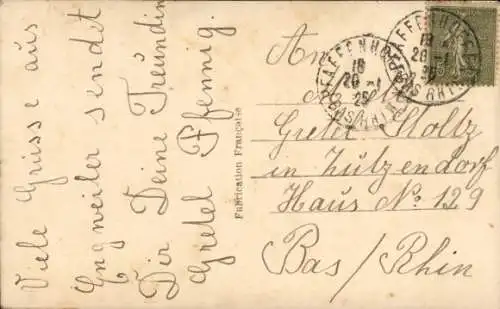 Viele Grüsse aus
Engweiler sendet
Dir Deine Freundin
Gretel Pfennig.
Fabrication Française
PFAFFENHOFFEN
18
20-1
25
BAS RHIN
PFAFFENHOFFEN
18
20-1
BAS RHIN
An
Greter Stoltz
in Zutzendorf
Haus No: 129
Bas/Rhin